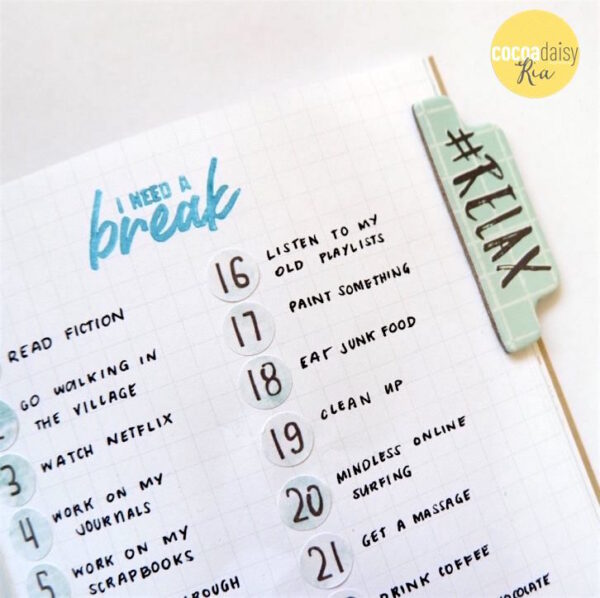 cocoadaisy
Ria
#RELAX
I NEED A
break
READ FICTION
GO WALKING IN
THE VILLAGE
3 WATCH NETFLIX
4 WORK ON MY
JOURNALS
5 WORK ON MY
SCRAPBOOKS
16 LISTEN TO MY
OLD PLAYLISTS
17 PAINT SOMETHING
18 EAT JUNK FOOD
19 CLEAN UP
20 MINDLESS ONLINE
SURFING
21 GET A MASSAGE
DRINK COFFEE